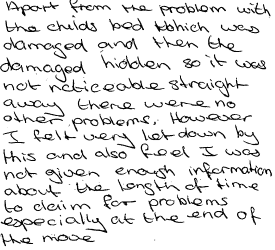 Apart from the problem with
the childs bed which was
damaged and then the
damaged hidden so it was
not noticeable straight
away there were no
other problems. However
I felt very let down by
this and also feel I was
not given enough information
about the length of time
to claim for problems
especially at the end of
the move